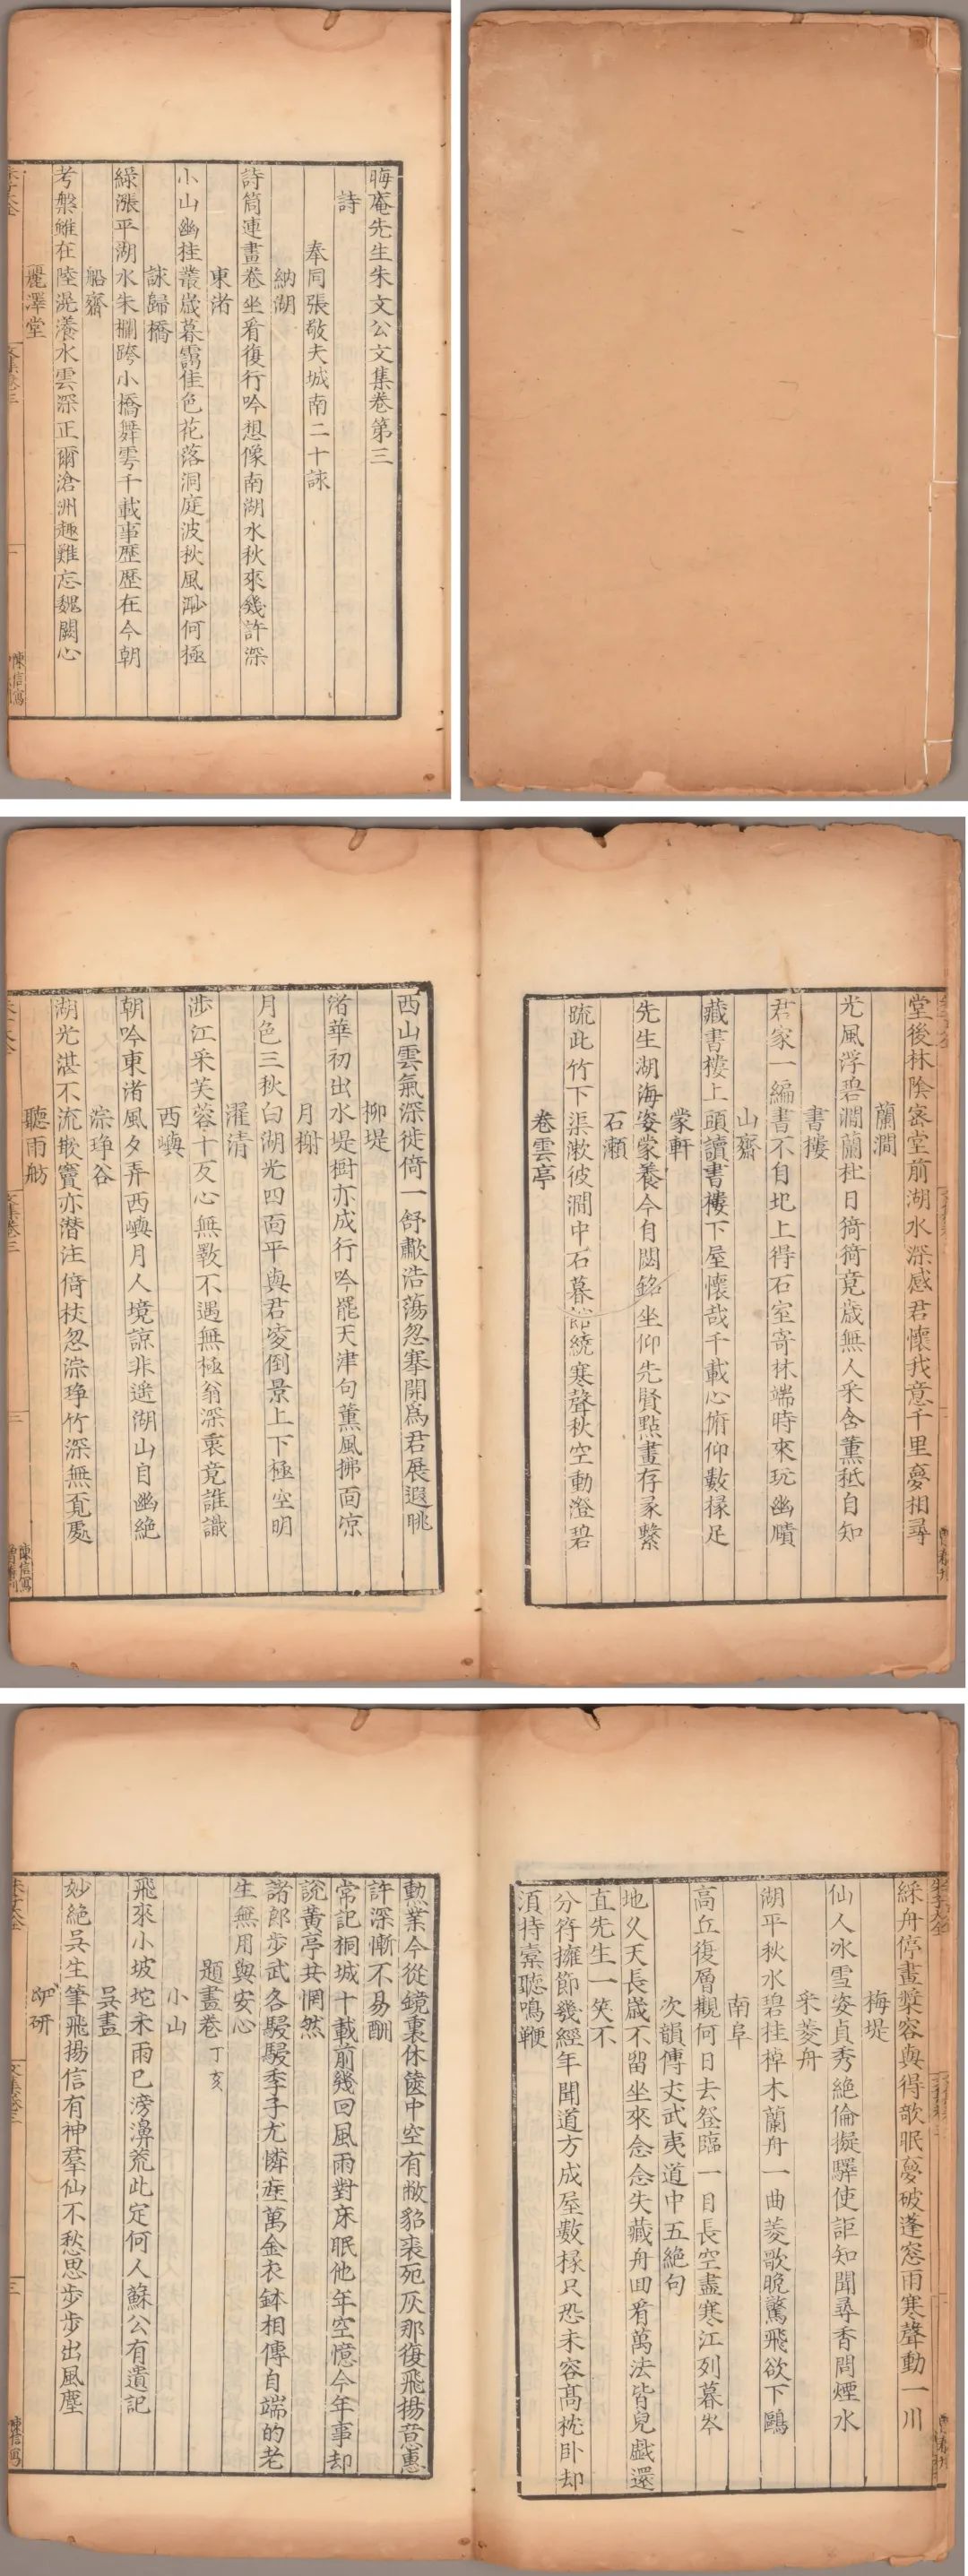 晦庵先生朱文公文集卷第三
詩
奉同張敬夫城南二十詠
納湖
詩筒連畫卷坐看復行吟想像南湖水秋來幾許深
東渚
小山幽桂叢歲暮靄佳色花落洞庭波秋風渺何極
詠歸橋
綠漲平湖水朱欄跨小橋舞雩千載事歷歷在今朝
船齋
考槃雖在陸滉瀁水雲深正爾滄洲趣難忘魏闕心
麗澤堂
文集卷三
陳信寫
堂後林陰密堂前湖水深感君懷我意千里夢相尋
蘭澗
光風浮碧澗蘭杜日猗猗竟歲無人采含薰秪自知
書樓
君家一編書不自圯上得石室寄林端時來玩幽賾
山齋
藏書樓上頭讀書樓下屋懷哉千載心俯仰數椽足
蒙軒
先生湖海姿蒙養今自閟銘坐仰先賢點畫存彖繫
石瀨
疏此竹下渠漱彼澗中石暮館繞寒聲秋空動澄碧
卷雲亭
西山雲氣深徙倚一舒歗浩蕩忽搴開爲君展遐眺
柳堤
渚華初出水堤樹亦成行吟罷天津句薰風拂面凉
月榭
月色三秋白湖光四面平與君凌倒景上下極空明
濯清
涉江采芙蓉十反心無斁不遇無極翁深衷竟誰識
西嶼
朝吟東渚風夕弄西嶼月人境諒非遥湖山自幽絶
淙琤谷
湖光湛不流嵌竇亦潛注倚杖忽淙琤竹深無覔處
聽雨舫
文集卷三
陳信寫
綵舟停畫槳容與得欹眠夢破蓬窓雨寒聲動一川
梅堤
仙人冰雪姿貞秀絶倫擬驛使詎知聞尋香問煙水
采菱舟
湖平秋水碧桂棹木蘭舟一曲菱歌晩驚飛欲下鷗
南阜
高丘復層觀何日去登臨一目長空盡寒江列暮岑
次韻傅丈武夷道中五絶句
地久天長歲不留坐來念念失藏舟回看萬法皆兒戲還
直先生一笑不
分符擁節幾經年聞道方成屋數椽只恐未容高枕卧却
須持橐聽鳴鞭
勲業今從鏡裏休篋中空有敝貂裘死灰那復飛揚意惠
許深慚不易酬
常記桐城十載前幾回風雨對床眠他年空憶今年事却
說黃亭共惘然
諸郎步武各駸駸季子尤憐產萬金衣鉢相傳自端的老
生無用與安心
題畫卷丁亥
小山
飛來小坡坨未雨已滂濞荒此定何人蘇公有遺記
吳畫
妙絶吳生筆飛揚信有神羣仙不愁思步步出風塵
文集卷三
陳信寫